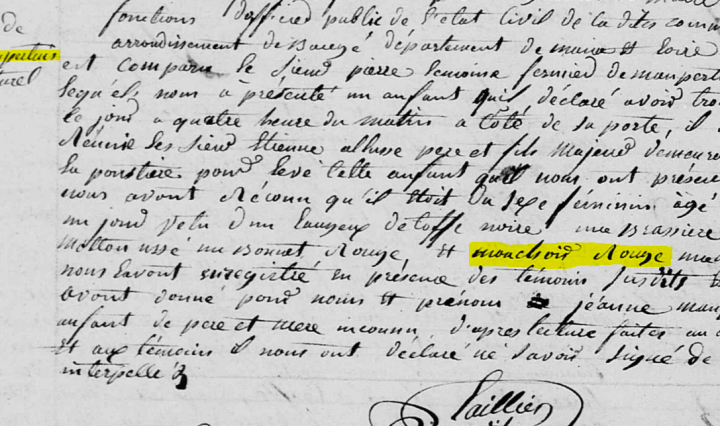 de
fonctions d'officier public de l'etat Civil de la dites comm
arrondissement de Baugé département de maine et Loire
est Comparu le Sieur pierre Lemoine fermier de manperth
lequels nous a présenté un anfant quil déclaré avoir trou
Ce jour a quatre heure du mattin a Coté de sa porte, il a
Réunie les Sieur Etienne alluse pere et fils Majeur demeura
la pour levé Cette anfant quil nous ont présen
nous avont Réconu qu'il Etoit du Sexe féminin âgé
un jour vetu d'un d'etoffe noire une Brassiere
Molton ussé un Bonnet Rouge et mouchoir Rouge
nous Lavont enregistré en présence des témoins Susdits
avont donné pour nom et prénom jéanne man
anfant de pere et mere inconnu, d'apres lecture faites au
Et aux témoins il nous ont déclaré ne Savoir Signé de
interpellé
Taillier